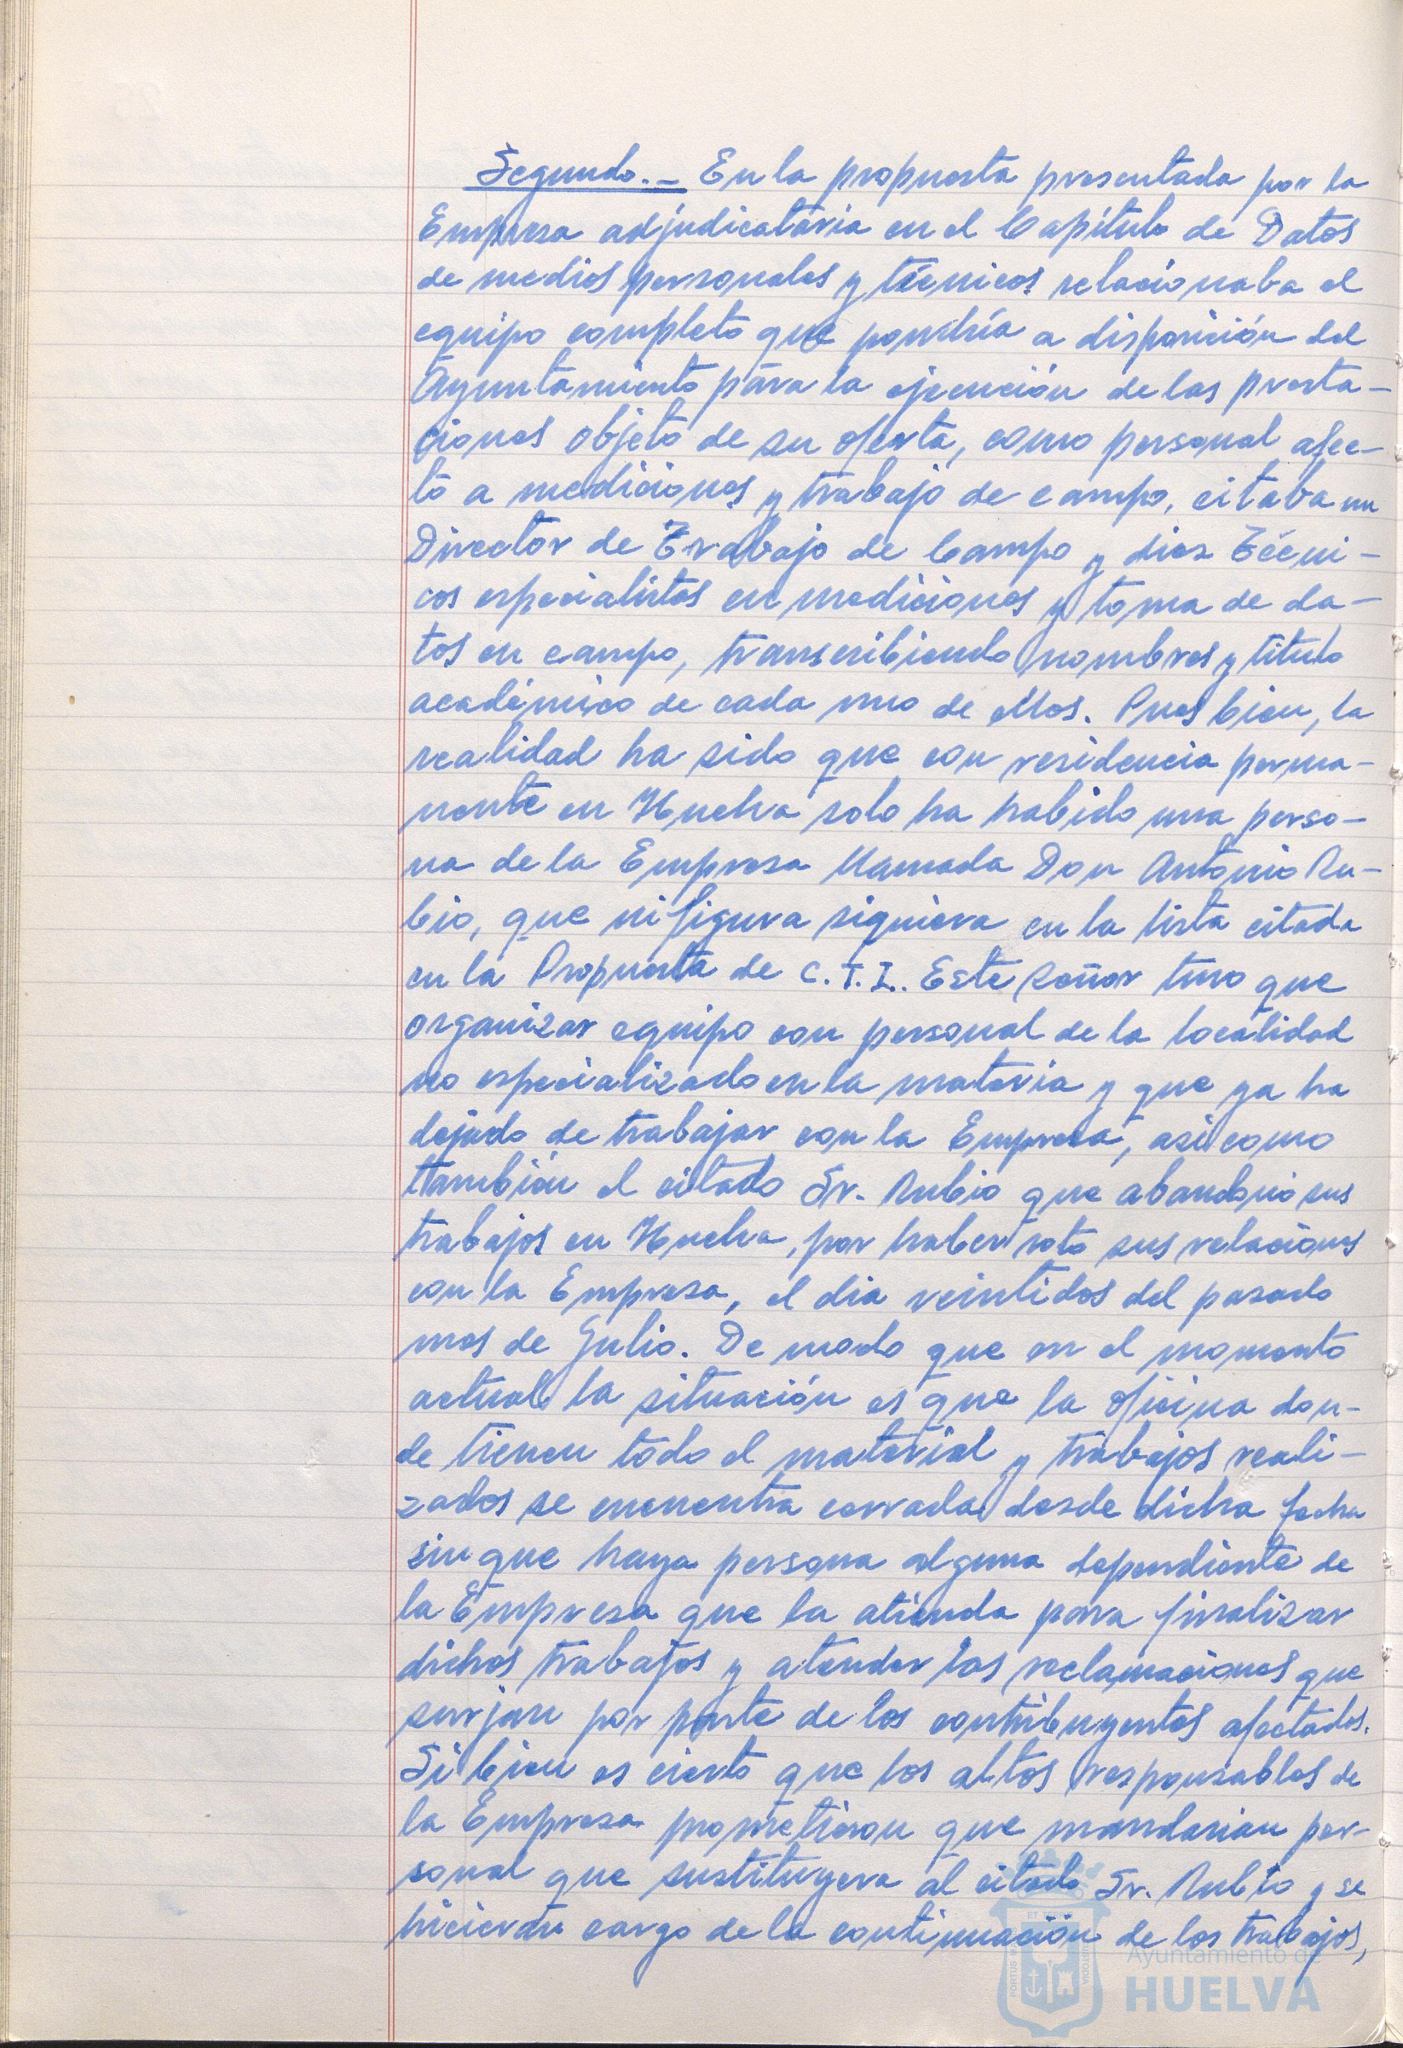 Segundo.- En la propuesta presentada por la
Empresa adjudicataria en el Capítulo de Datos
de medios personales y técnicos relacionaba el
equipo completo que pondría a disposición del
Ayuntamiento para la ejecución de las presta-
ciones objeto de su oferta, como personal afec-
to a mediciones y trabajo de campo, citaba un
Director de Trabajo de Campo y diez Técni-
cos especialistas en mediciones y toma de da-
tos en campo, transcribiendo nombres y título
académico de cada uno de ellos. Pues bien, la
realidad ha sido que con residencia perma-
nente en Huelva solo ha habido una perso-
na de la Empresa llamada Don Antonio Ru-
bio, que ni figura siquiera en la lista citada
en la Propuesta de C.T.I.. Este señor tuvo que
organizar equipo con personal de la localidad
no especializado en la materia y que ya ha
dejado de trabajar con la Empresa, asi como
tambien el citado Sr. Rubio que abandonó sus
trabajos en Huelva, por haber roto sus relaciones
con la Empresa, el dia veintidos del pasado
mes de Julio. De modo que en el momento
actual la situación es que la oficina don-
de tienen todo el material y trabajos reali-
zados se encuentra cerrada desde dicha fecha
sin que haya persona alguna dependiente de
la Empresa que la atienda para finalizar
dichos trabajos y atender las reclamaciones que
surjan por parte de los contribuyentes afectados.
Si bien es cierto que los altos responsables de
la Empresa prometieron que mandarian per-
sonal que sustituyera al citado Sr. Rubio y se
hicieran cargo de la continuación de los trabajos,
Ayuntamiento de
HUELVA